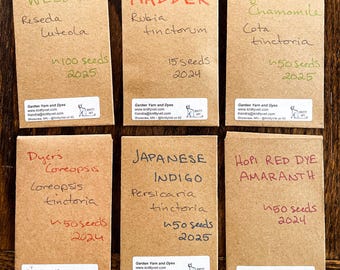 WELD
Reseda
Luteola
~100 seeds
2025
Garden Yarn and Dyes
www.knittyvet.com
MADDER
Rubia
tinctorum
15 seeds
2024
Garden Yarn and Dyes
www.knittyvet.com
Chamomile
Cota
tinctoria
~50 seeds
2025
Garden Yarn and Dyes
www.knittyvet.com
Dyers
Coreopsis
Coreopsis
tinctoria
~50 seeds
2024
JAPANESE
INDIGO
Persicaria
tinctoria
~50 seeds
2025
Garden Yarn and Dyes
HOPI RED DYE
AMARANTH
~50 seeds
2024